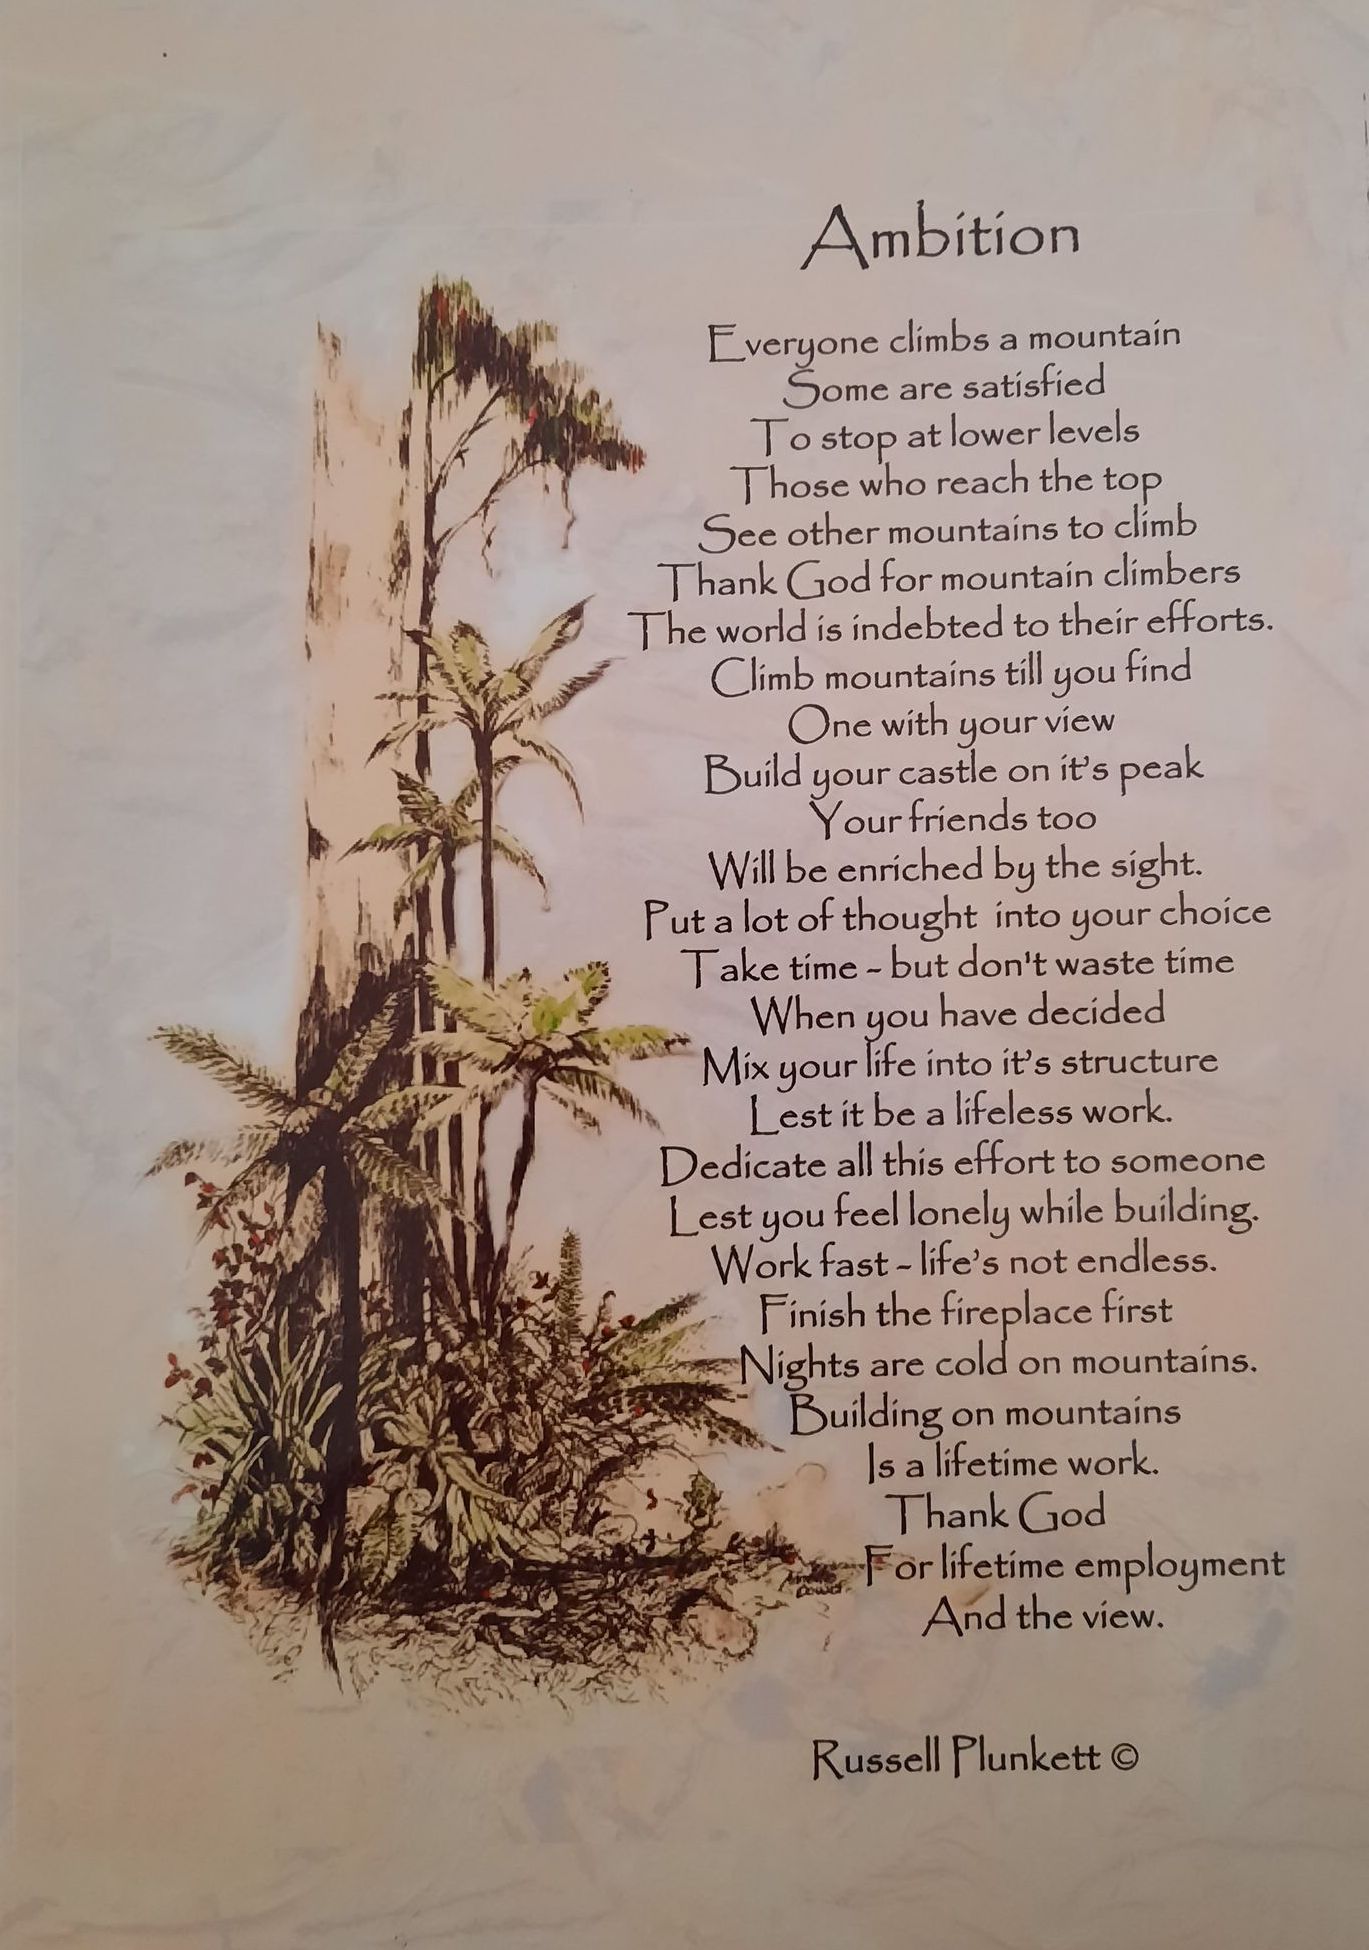 Ambition
Everyone climbs a mountain
Some are satisfied
To stop at lower levels
Those who reach the top
See other mountains to climb
Thank God for mountain climbers
The world is indebted to their efforts.
Climb mountains till you find
One with your view
Build your castle on it's peak
Your friends too
Will be enriched by the sight.
Put a lot of thought into your choice
Take time ~ but don't waste time
When you have decided
Mix your life into it's structure
Lest it be a lifeless work.
Dedicate all this effort to someone
Lest you feel lonely while building.
Work fast ~ life's not endless.
Finish the fireplace first
Nights are cold on mountains.
Building on mountains
Is a lifetime work.
Thank God
For lifetime employment
And the view.
Russell Plunkett ©